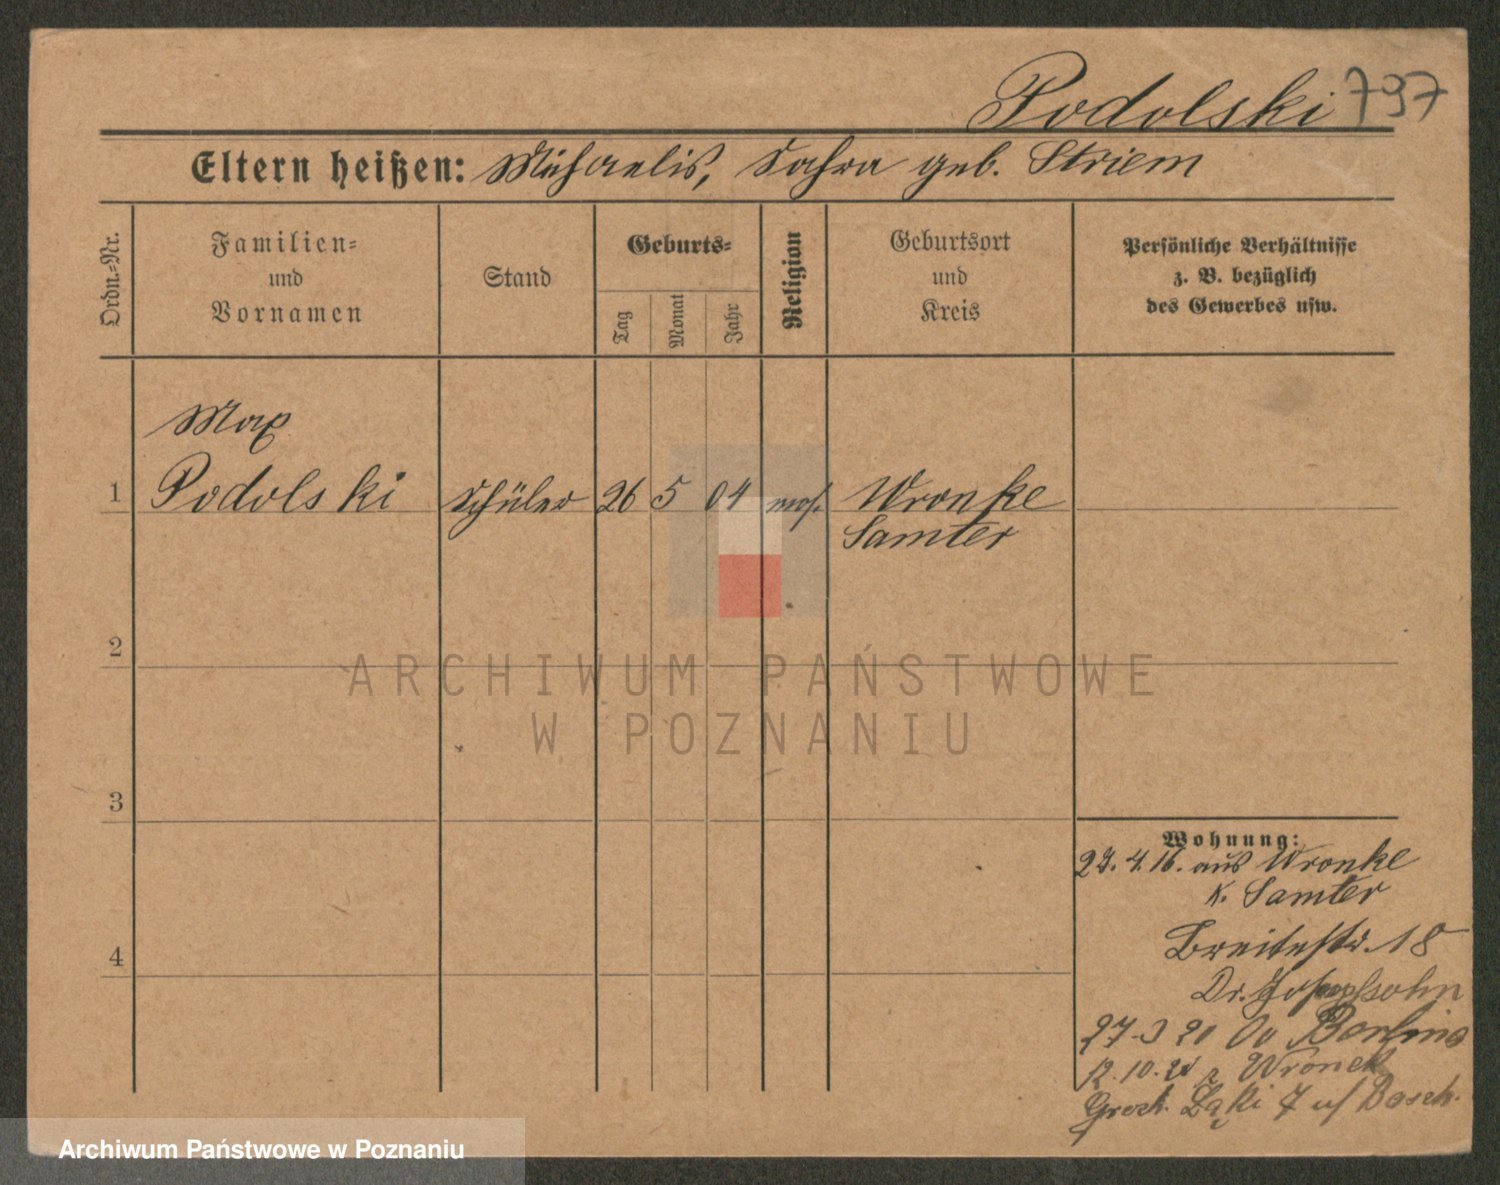 Podolski 797
Eltern heißen: Michaelis, Sahra geb. Striem
Ordn.-Nr.
Familien-
und
Vornamen
Stand
Geburts-
Tag
Monat
Jahr
Religion
Geburtsort
und
Kreis
Persönliche Verhältnisse
z. B. bezüglich
des Gewerbes usw.
Max
1 Podolski Schüler 26 5 04 mos. Wronke
Samter
2
3
4
ARCHIWUM PAŃSTWOWE
W POZNANIU
Wohnung:
27.4.16. aus Wronke
K. Samter
Breitestr. 18
Dr.
27.3 20 Do Berlina
12.10.20 z Wronek
Groch. Łąki 7 u/ Basch.
Archiwum Państwowe w Poznaniu